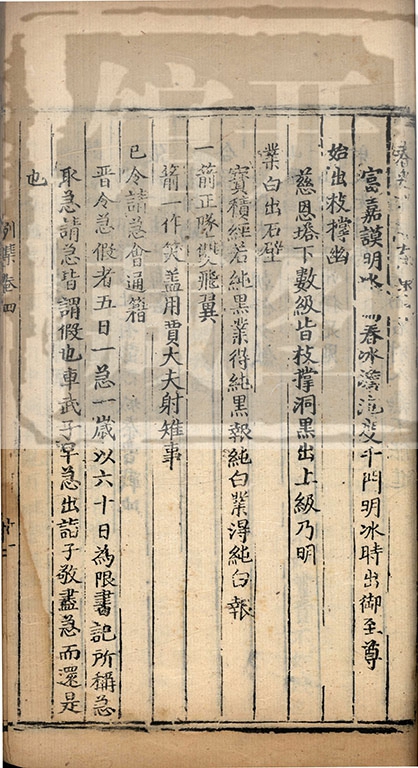 富嘉謨明冰 春冰 斗門明冰時出御至尊
始出枝撐幽
慈恩塔下數級皆枝撐洞黑出上級乃明
業白出石壁
寳積經若純黒業得純黒報純白業得純白報
一箭正墜雙飛翼
箭一作笑盖用賈大夫射雉事
已令請急會通籍
晉令急假者五日一急一歲以六十日為限書記所稱急
取急請急皆謂假也車武子早急出詣子敬盡急而還是
也
卷四